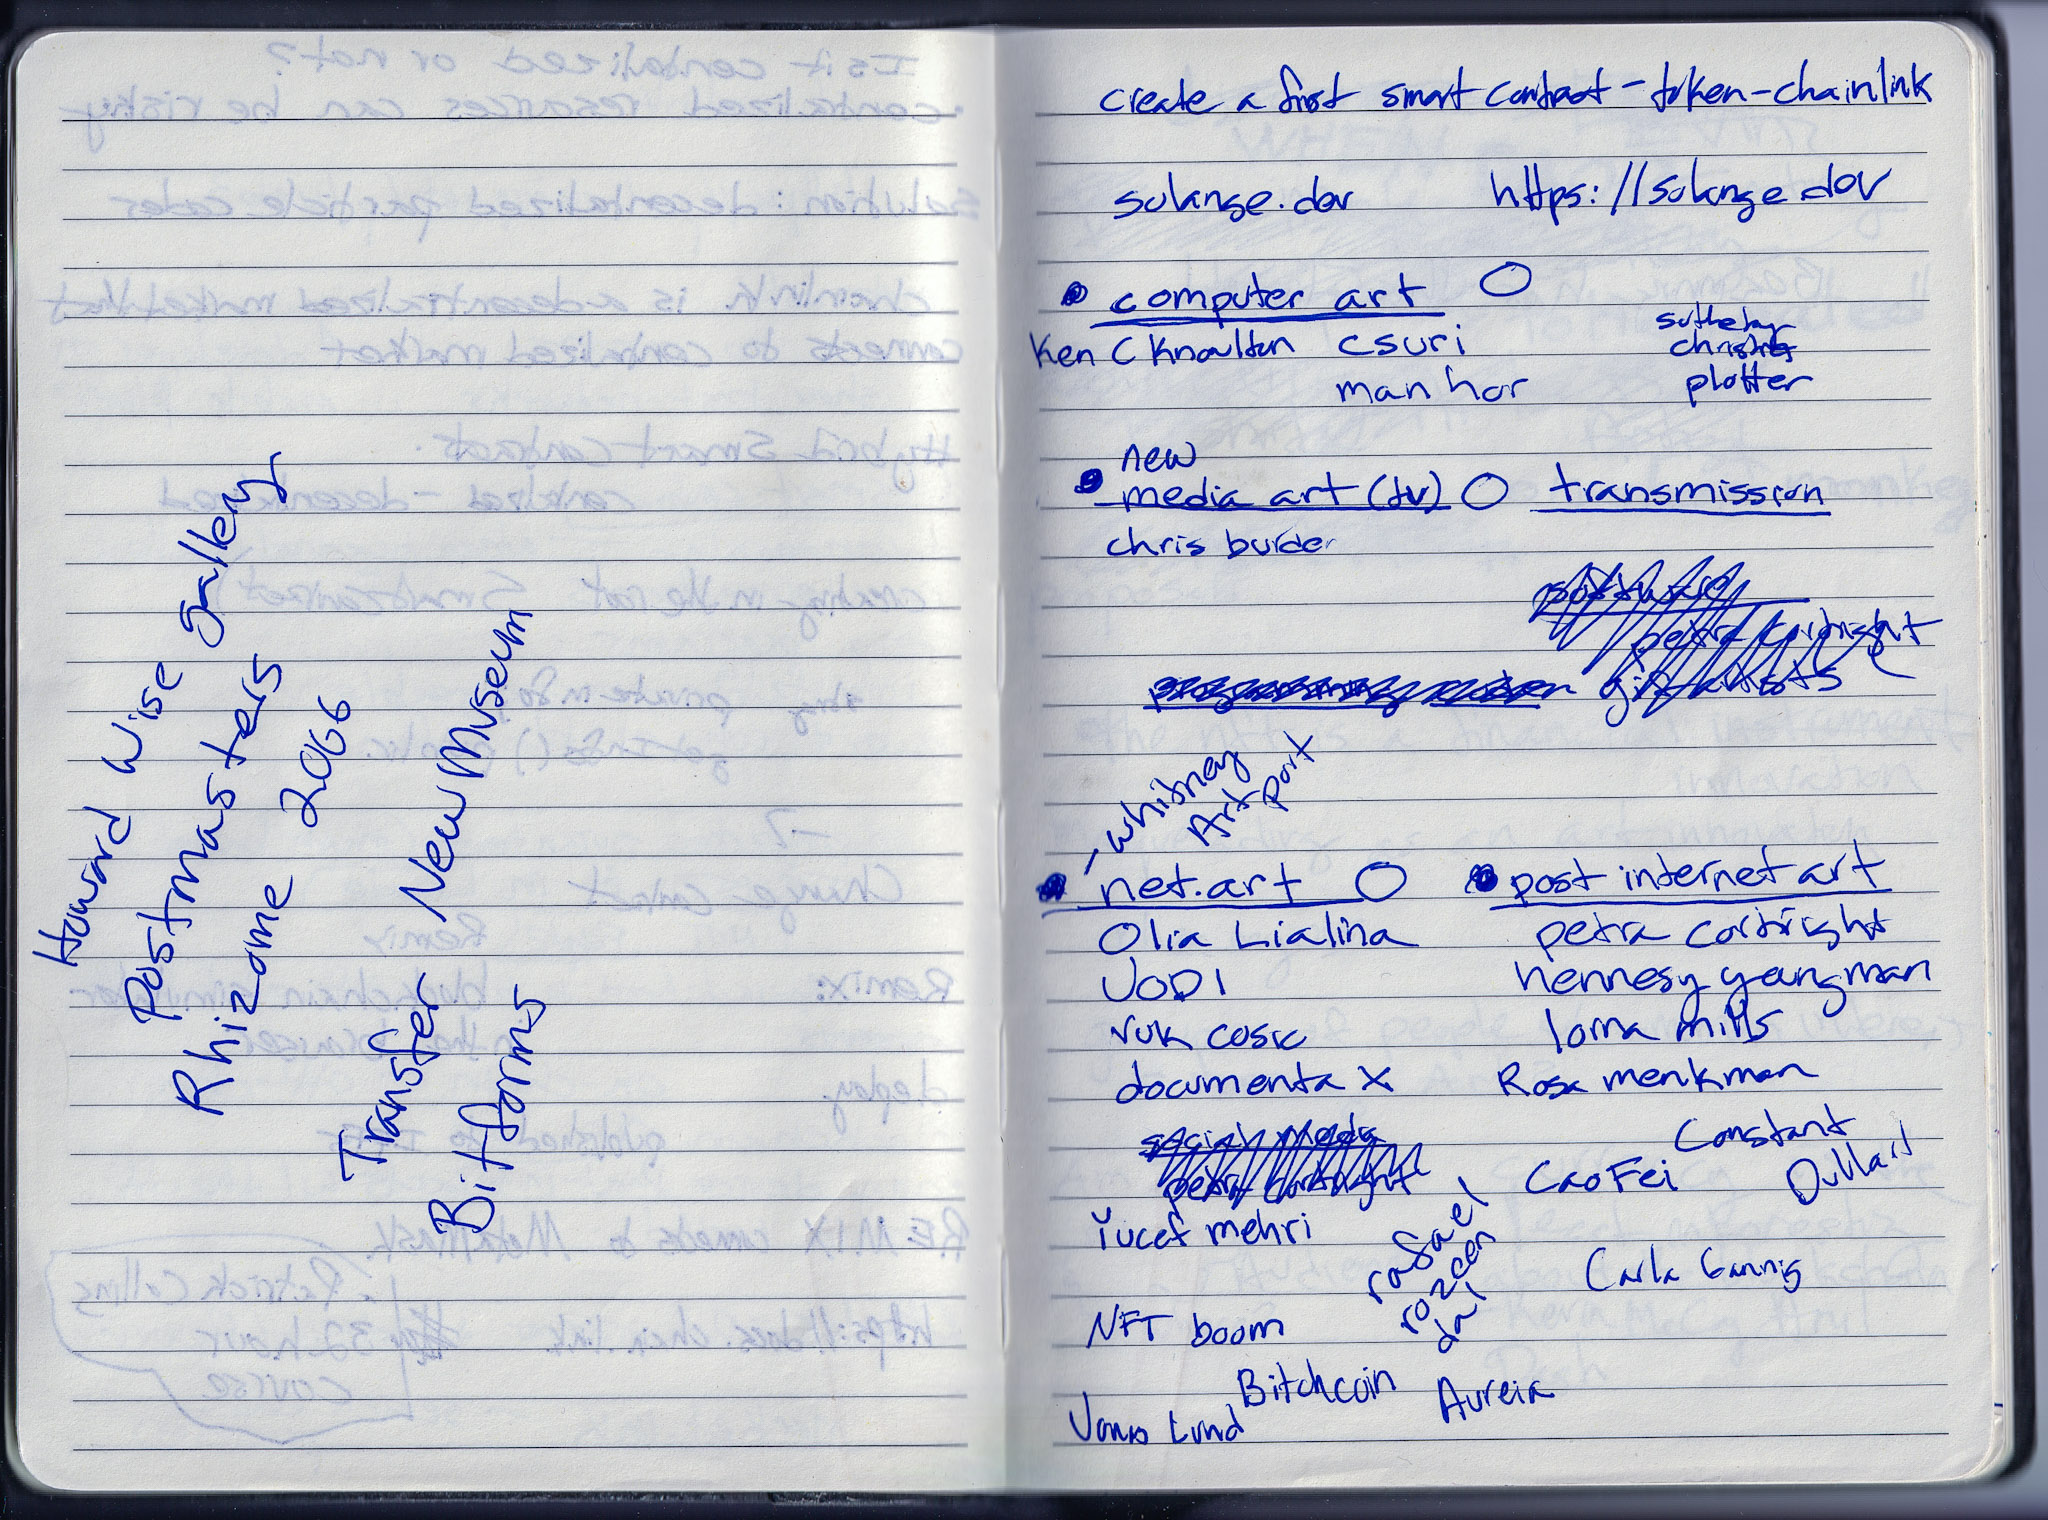 Howard Wise Gallery
Postmasters
Rhizome 2066
New Museum
Transfer
Bitforms
create a first smart contract - token - chainlink
solange.dev https://solange.dev
computer art
Ken C Knowlton csuri
man hor
sotheby
christies
plotter
new
media art (tv) transmission
chris burden
petra cortright
girl artists
- whitney
Art port
net.art
Olia Lialina
JODI
vuk cosic
documenta x
social media
petra cortright
Yucef mehri
rafael
rozcen
dal
NFT boom
Bitchcoin Aureia
Jonas Lund
post internet art
petra cortright
hennesy youngman
lorna mills
Rosa menkman
Constant
Dullart
Cao Fei
Carla Gannis